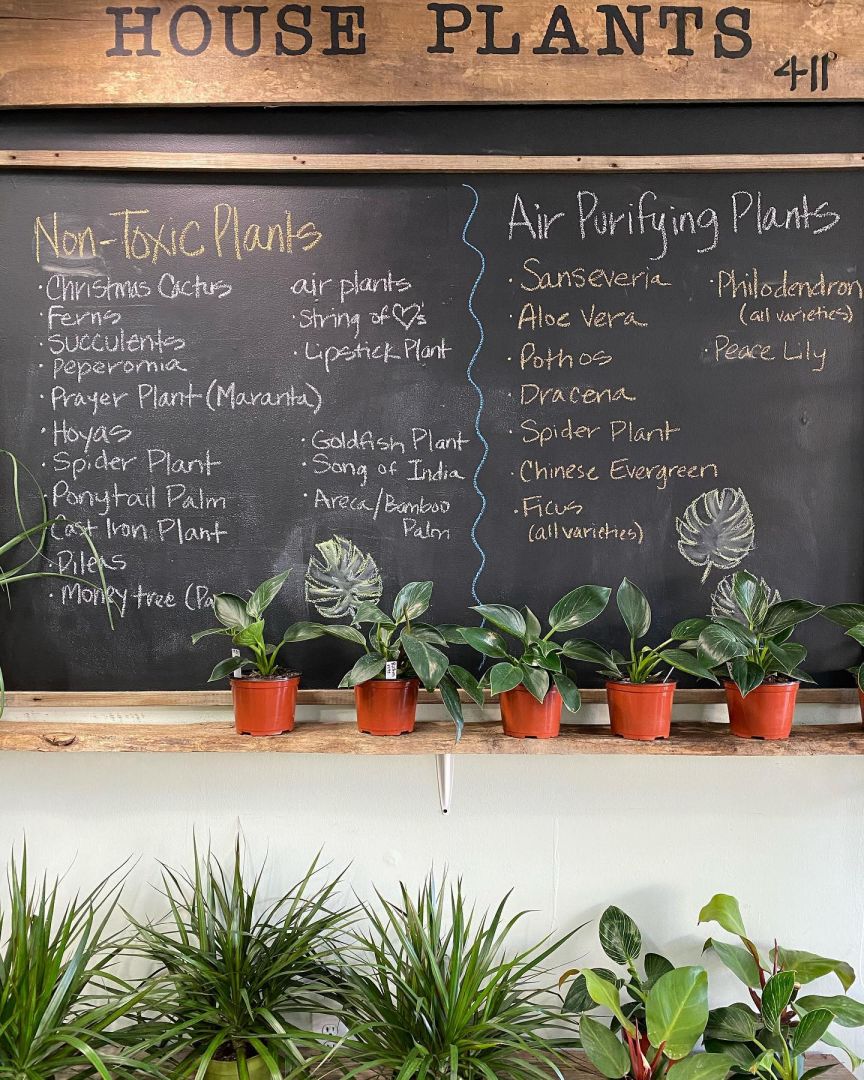 HOUSE PLANTS
411
Non-Toxic Plants
· Christmas Cactus
· Ferns
· Succulents
· Peperomia
· Prayer Plant (Maranta)
· Hoyas
· Spider Plant
· Ponytail Palm
· Cast Iron Plant
· Pileas
· Money tree (Pa
air plants
· String of ♡'s
· Lipstick Plant
· Goldfish Plant
· Song of India
· Areca/Bamboo
Palm
Air Purifying Plants
· Sanseveria
· Aloe Vera
· Pothos
· Dracena
· Spider Plant
· Chinese Evergreen
· Ficus
(all varieties)
· Philodendron
(all varieties)
· Peace Lily